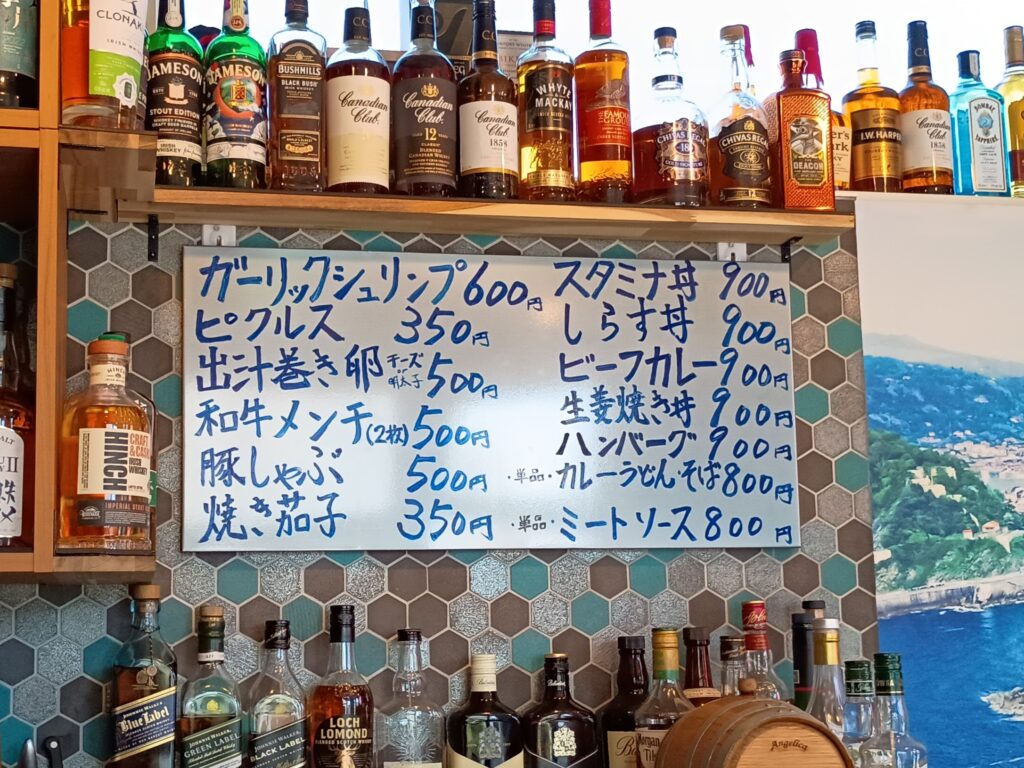 CLONAK
IRISH WHISKEY
JAMESON
STOUT EDITION
IRISH WHISKEY
JAMESON
BUSHMILLS
BLACK BUSH
Canadian Club
Canadian Club
12
CLASSIC
BLENDED CANADIAN WHISKY
Canadian Club
1858
WHYTE & MACKAY
THE FAMOUS
CHIVAS REGAL
18
CHIVAS REGAL
12
DEACON
I.W. HARPER
Canadian Club
1858
BOMBAY SAPPHIRE
ガーリックシュリンプ 600円
ピクルス 350円
出汁巻き卵 チーズ 明太子 500円
和牛メンチ(2枚) 500円
豚しゃぶ 500円
焼き茄子 350円
スタミナ丼 900円
しらす丼 900円
ビーフカレー 900円
生姜焼き丼 900円
ハンバーグ 900円
・単品・カレーうどん・そば 800円
・単品・ミートソース 800円
HINCH
CRAFT & CASK
IRISH WHISKEY
IMPERIAL STOUT
JOHNNIE WALKER
Blue Label
JOHNNIE WALKER
GREEN LABEL
JOHNNIE WALKER
BLACK LABEL
LOCH LOMOND
BLENDED SCOTCH WHISKY
Angelica